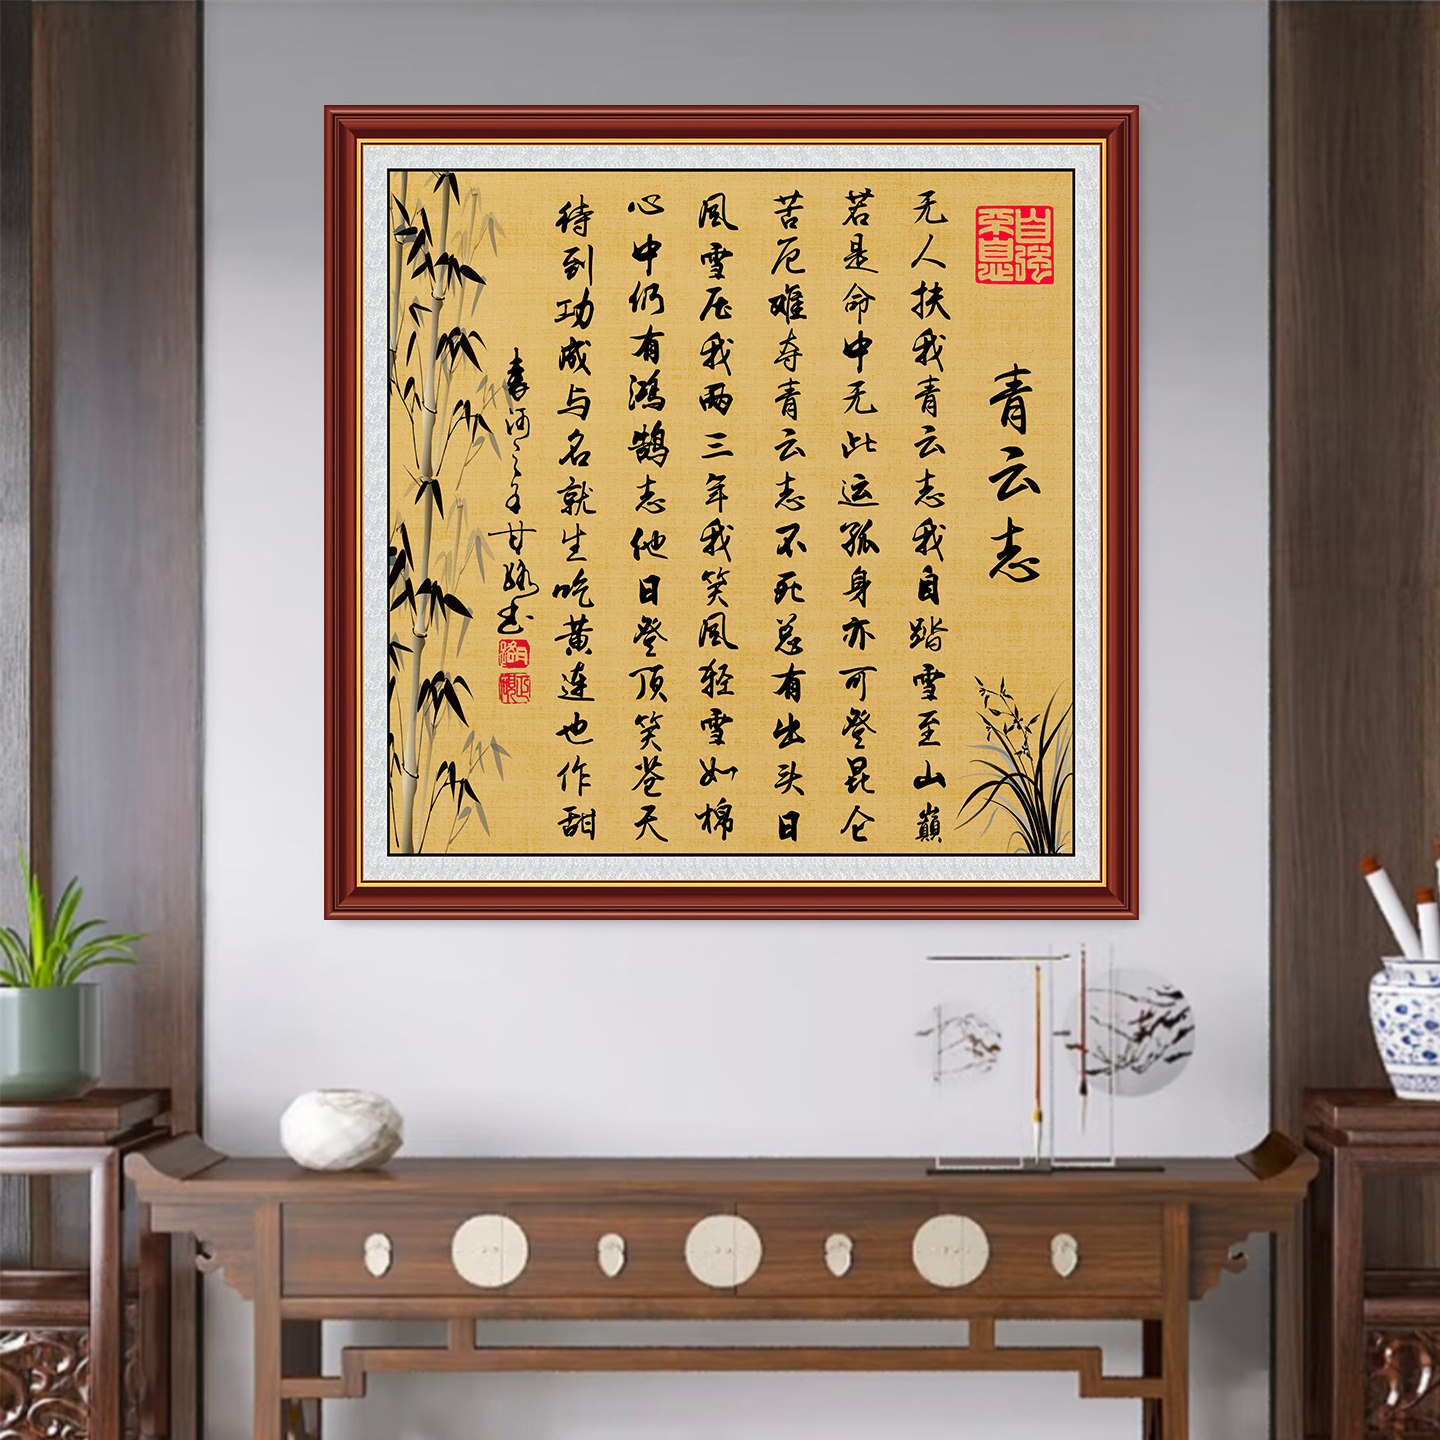 自强不息
青云志
无人扶我青云志我自踏雪至山巔
若是命中无此运孤身亦可登昆仑
苦厄难夺青云志不死总有出头日
风雪压我两三年我笑风轻雪如棉
心中仍有鸿鹄志他日登顶笑苍天
待到功成与名就生吃黄连也作甜